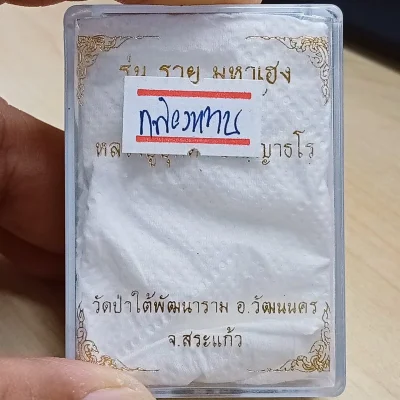 รุ่น รวย มหาเฮง
กล่องทาน
วัดป่าใต้พัฒนาราม อ.วัฒนนคร
จ.สระแก้ว